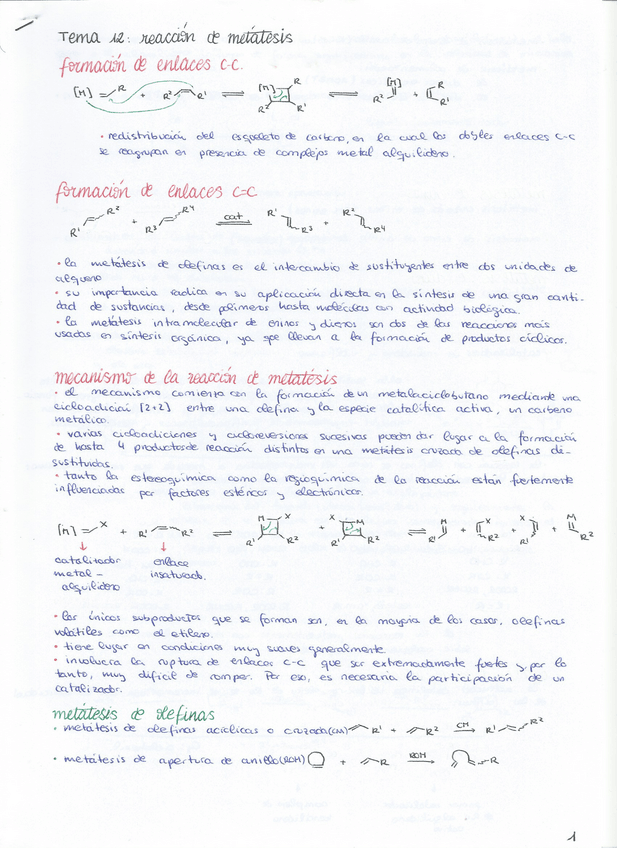 Tema 12: reacción de metátesis
formación de enlaces c-c.
[M] R + R² R¹ ⇌ [M] R R² R¹ ⇌ [M] R² + R R¹
• redistribución del esqueleto de carbono, en la cual los dobles enlaces c-c
se reagrupan en presencia de complejos metal alquilideno.
formación de enlaces c=c
R¹ R² + R³ R⁴ cat R¹ R³ + R² R⁴
• la metátesis de olefinas es el intercambio de sustituyentes entre dos unidades de
alqueno
• su importancia radica en su aplicación directa en la síntesis de una gran canti-
dad de sustancias, desde polímeros hasta moléculas con actividad biológica.
• la metátesis intramolecular de eninos y dienos son dos de las reacciones más
usadas en síntesis orgánica, ya que llevan a la formación de productos cíclicos.
mecanismo de la reacción de metatésis
• el mecanismo comienza con la formación de un metalaciclobutano mediante una
cicloadición [2+2] entre una olefina y la especie catalítica activa, un carbeno
metálico.
• varias cicloadiciones y cicloreversiones sucesivas pueden dar lugar a la formación
de hasta 4 productos de reacción distintos en una metátesis cruzada de olefinas di-
sustituidas.
• tanto la estereoquímica como la regioquímica de la reacción están fuertemente
influenciadas por factores estéricos y electrónicos.
[M] = X + R¹ R² ⇌ M X R¹ R² + X M R¹ R² ⇌ M R¹ + X R² + X R¹ + M R²
catalizador enlace
metal- insaturado.
alquilideno
• los únicos subproductos que se forman son, en la mayoría de los casos, olefinas
volátiles como el etileno.
• tiene lugar en condiciones muy suaves generalmente.
• involucra la ruptura de enlaces c-c que son extremadamente fuertes y, por lo
tanto, muy difícil de romper. Por eso, es necesaria la participación de un
catalizador.
metátesis de olefinas
• metátesis de olefinas acíclicas o cruzada (CM) R¹ + R² CM R¹ R²
• metátesis de apertura de anillo (ROM) + R ROM R
1